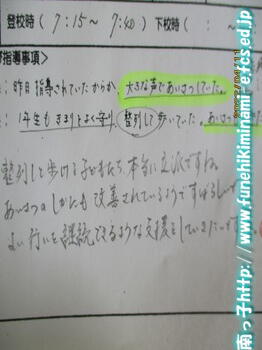 登校時( 7:15~ 7:40) 下校時( :
指導事項>
:昨日指導されていたからか、大きな声であいさつしていた。
:1年生もきまりよく守り、整列して歩いていた。あいさつ
整列して歩ける子どもたち、本当に立派ですね。
あいさつのしかたも改善されているようですばらしい
よい行いを継続できるような支援をしていきたい
南っ子http://www.funehikiminami-e.fcs.ed.jp/